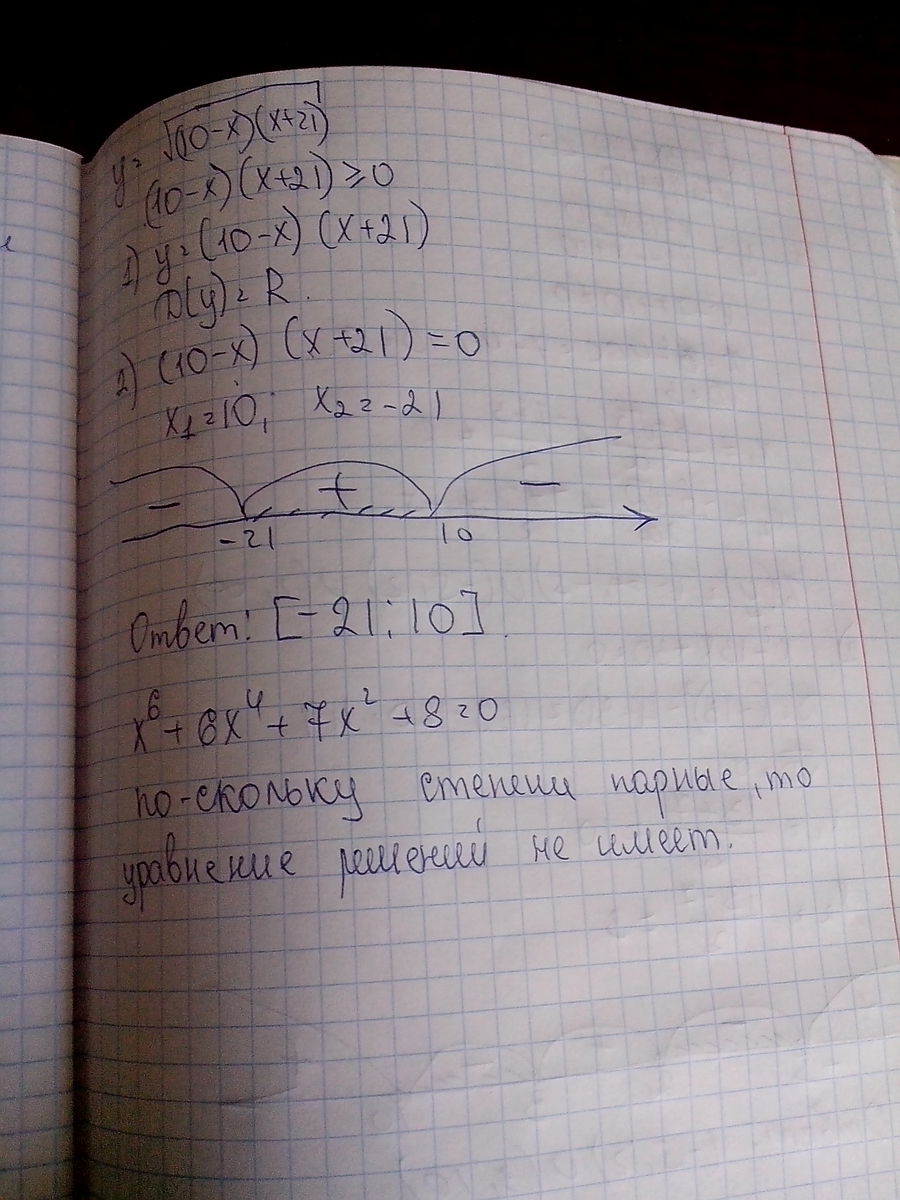 y = √(10-x)(x+21)
(10-x)(x+21) ≥ 0
1) y = (10-x) (x+21)
D(y) = R.
2) (10-x) (x+21) = 0
x₁ = 10; x₂ = -21
- + -
-21 10
Ответ: [-21; 10].
x⁶ + 6x⁴ + 7x² + 8 = 0
по-скольку степени парные, то
уравнение решений не имеет.